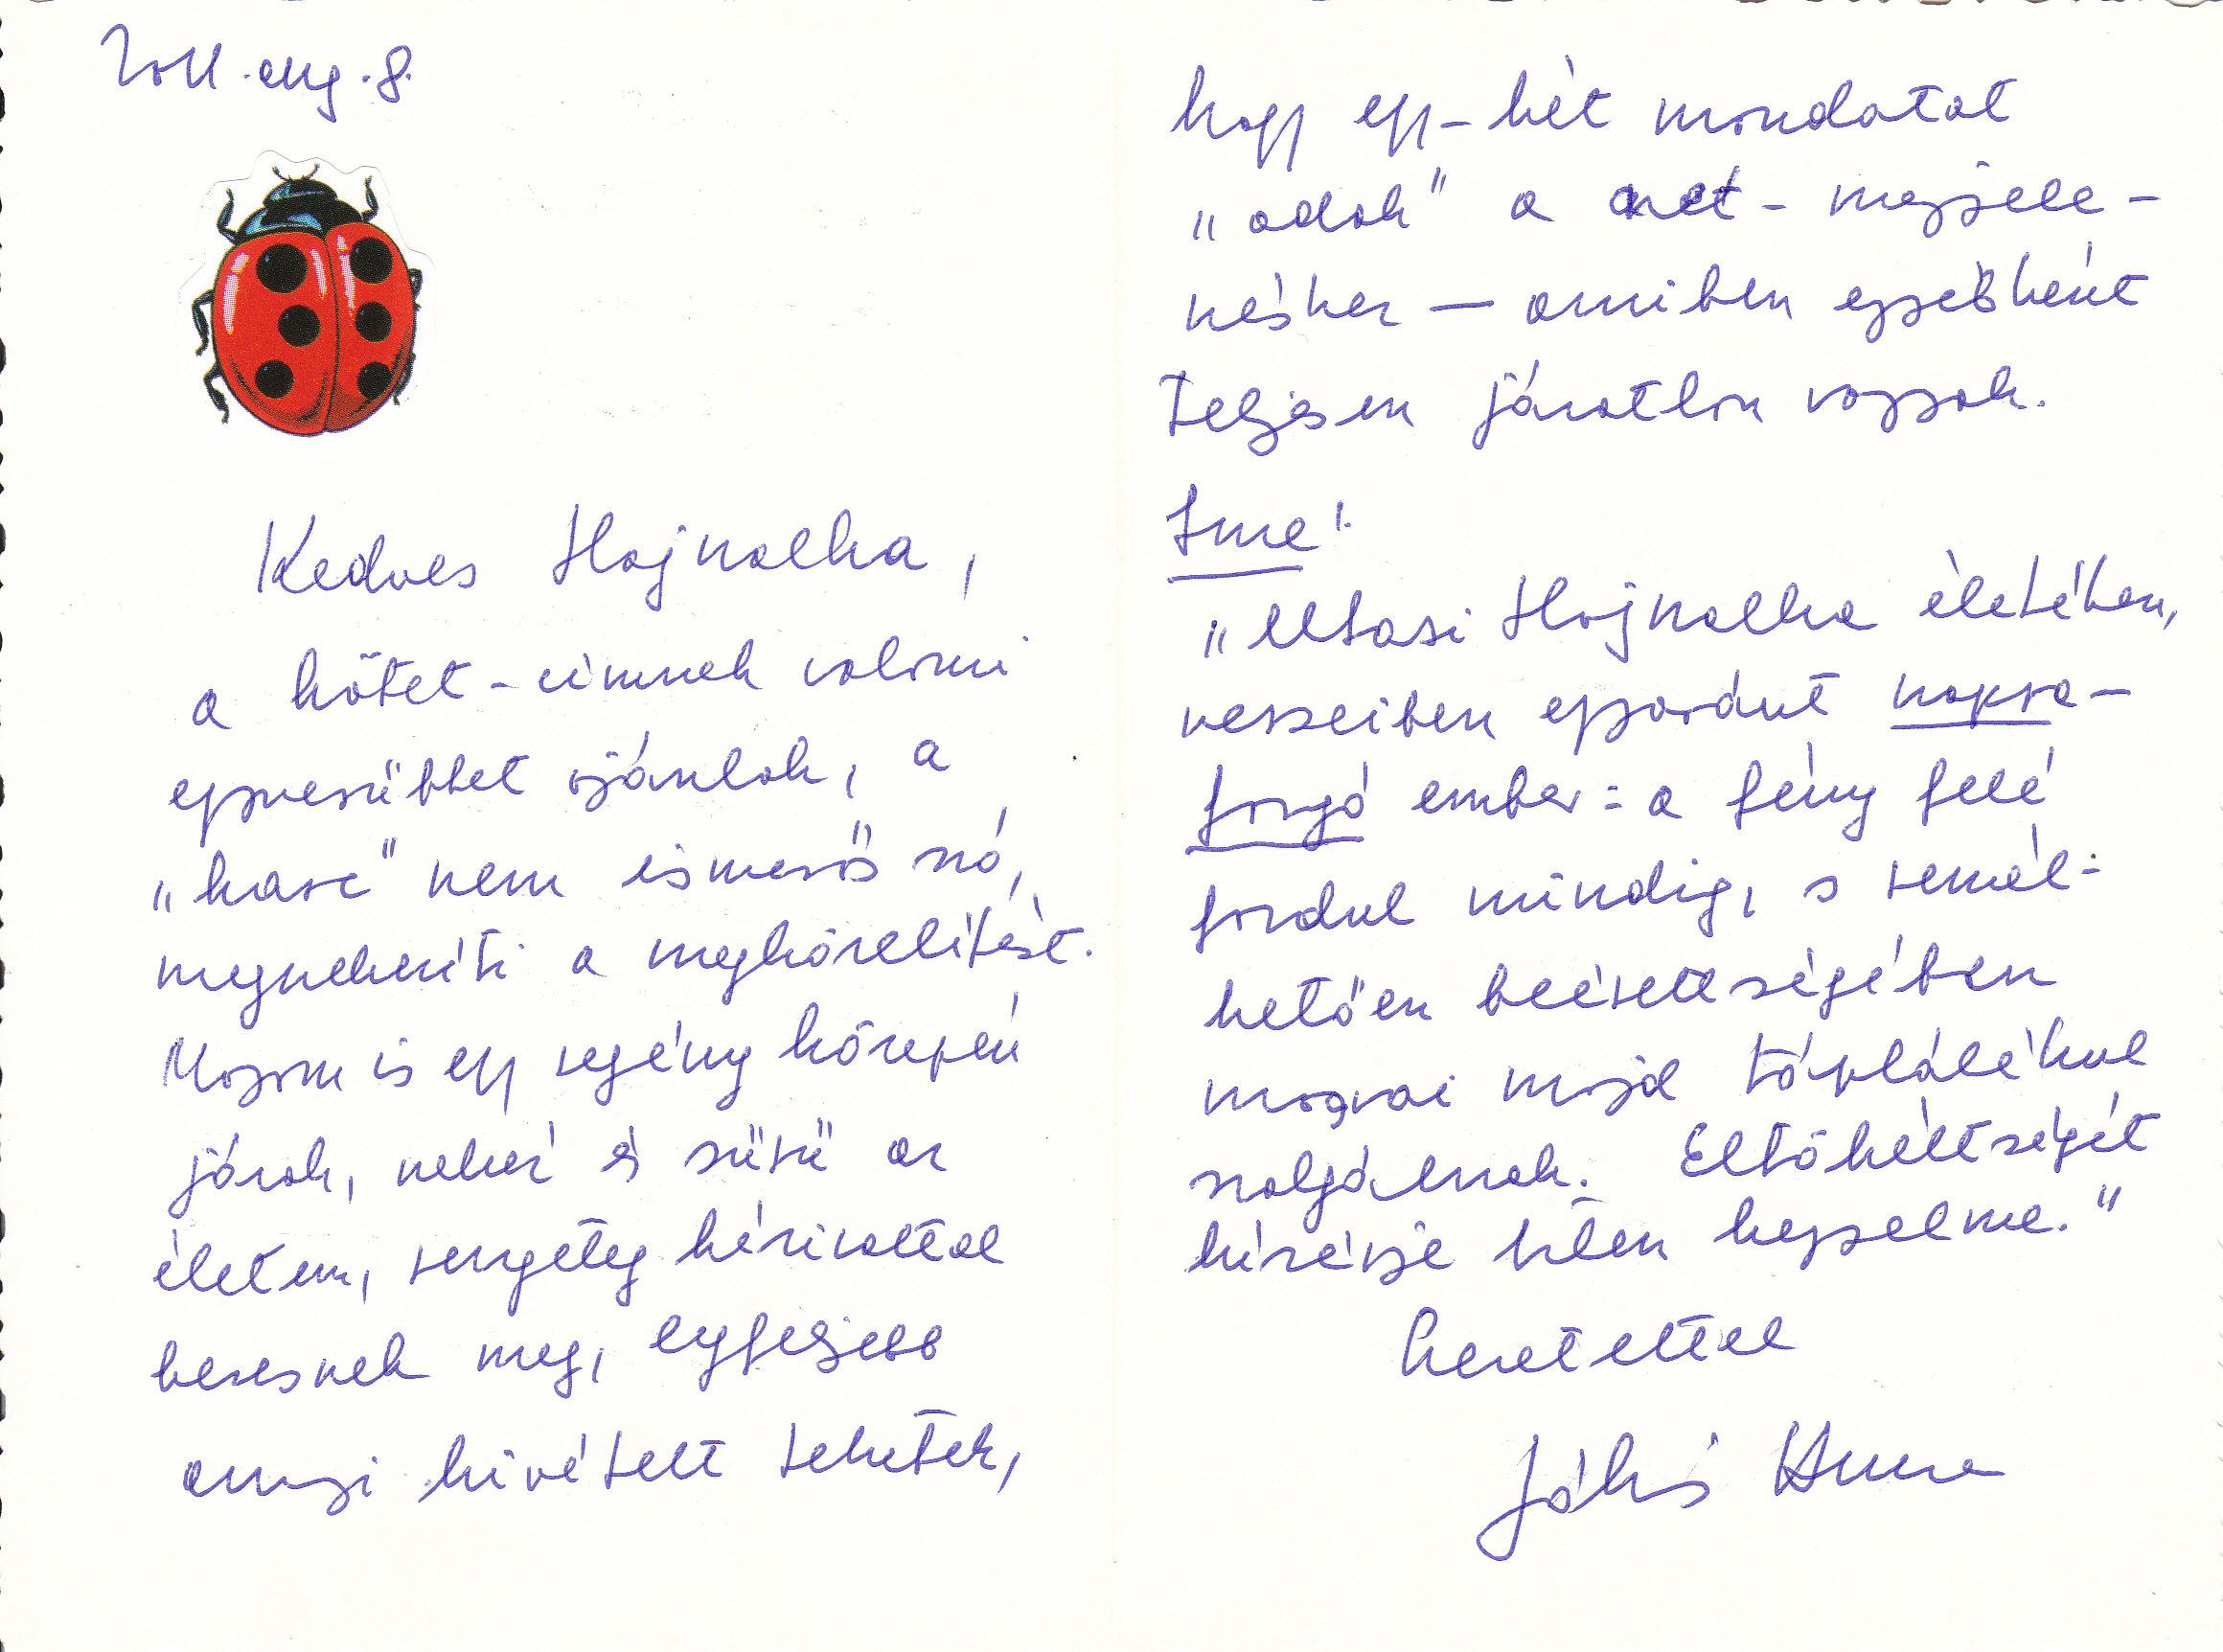 2011. aug. 8.
Kedves Hajnalka,
a kötet-címnek valami
egyszerűbbet ajánlok, a
„kasc” nem ismerős szó,
megnehezíti a megközelítést.
Magam is egy regény közepén
járok, nehéz és sűrű az
életem, rengeteg kézirattal
keresnek meg, legfeljebb
annyi kivételt tehetek,
hogy egy-két mondatot
„adok” a net-megjele-
néshez — amiben egyébként
teljesen járatlan vagyok.
Íme:
„Utasi Hajnalka életében,
verseiben egyaránt napra-
forgó ember: a fény felé
fordul mindig, s remél-
hetően beérettségében
magvai majd táplálékul
szolgálnak. Eltökéltségét
kísérje Isten kegyelme.”
Szeretettel
Jókai Anna